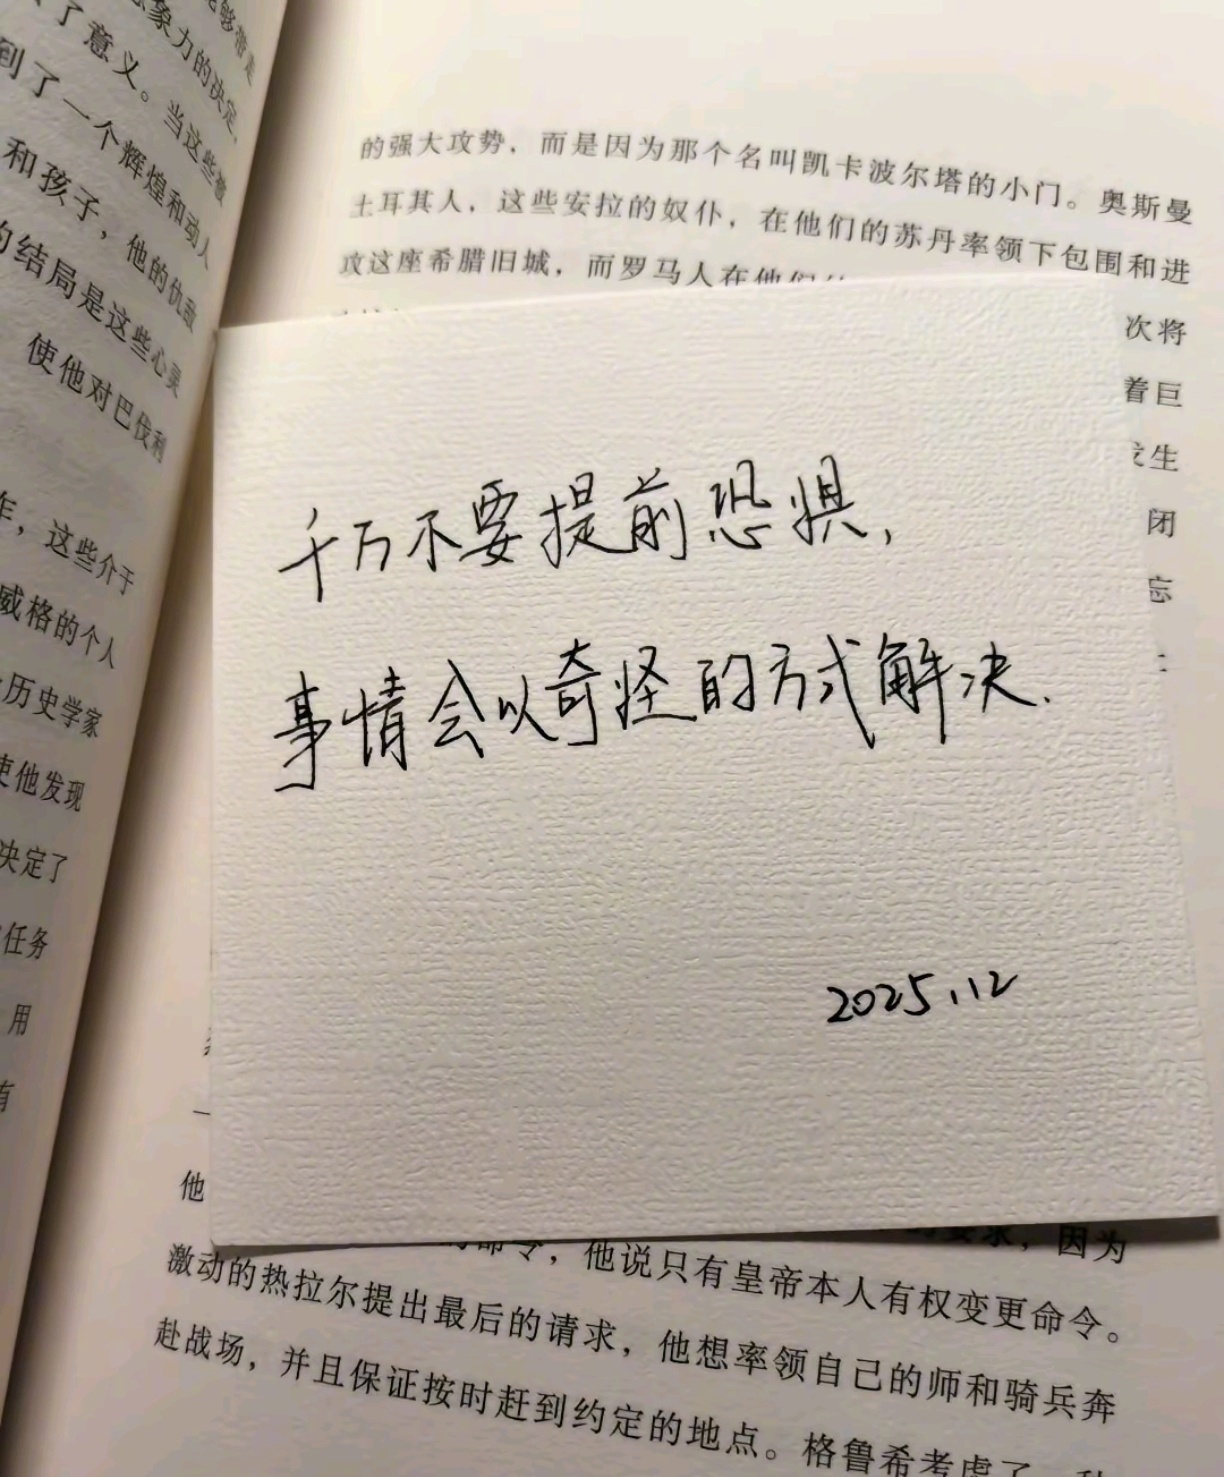 能够带走
象力的决定,
了意义。当这些激
到了一个辉煌和动人
和孩子，他的仇敌
的结局是这些心灵
使他对巴伐利
年，这些介于
威格的个人
历史学家
使他发现
决定了
任务
用
有
的强大攻势，而是因为那个名叫凯卡波尔塔的小门。奥斯曼
土耳其人，这些安拉的奴仆，在他们的苏丹率领下包围和进
攻这座希腊旧城，而罗马人在他们
次将
着巨
发生
闭
忘
千万不要提前恐惧，
事情会以奇怪的方式解决.
2025.12
他
的命令，他说只有皇帝本人有权变更命令。
要求，因为
激动的热拉尔提出最后的请求，他想率领自己的师和骑兵奔
赴战场，并且保证按时赶到约定的地点。格鲁希考虑了一秒